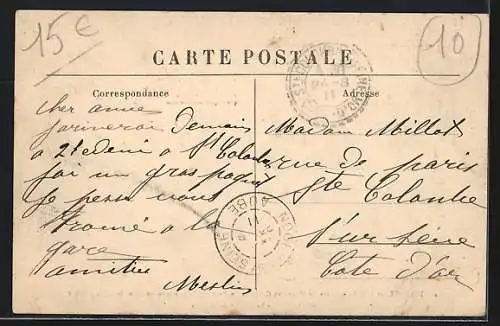 15€
10
CARTE POSTALE
Correspondance
Adresse
cher amie
j'arriverai Demain
a 2h edemi a St Colombe
j'ai un gros paquet
je pense vous
trouvé a la
gare
amitié
Madame Millot
rue de paris
Ste Colombe
sur seine
Cote d'or
AUBE
SEINE
11